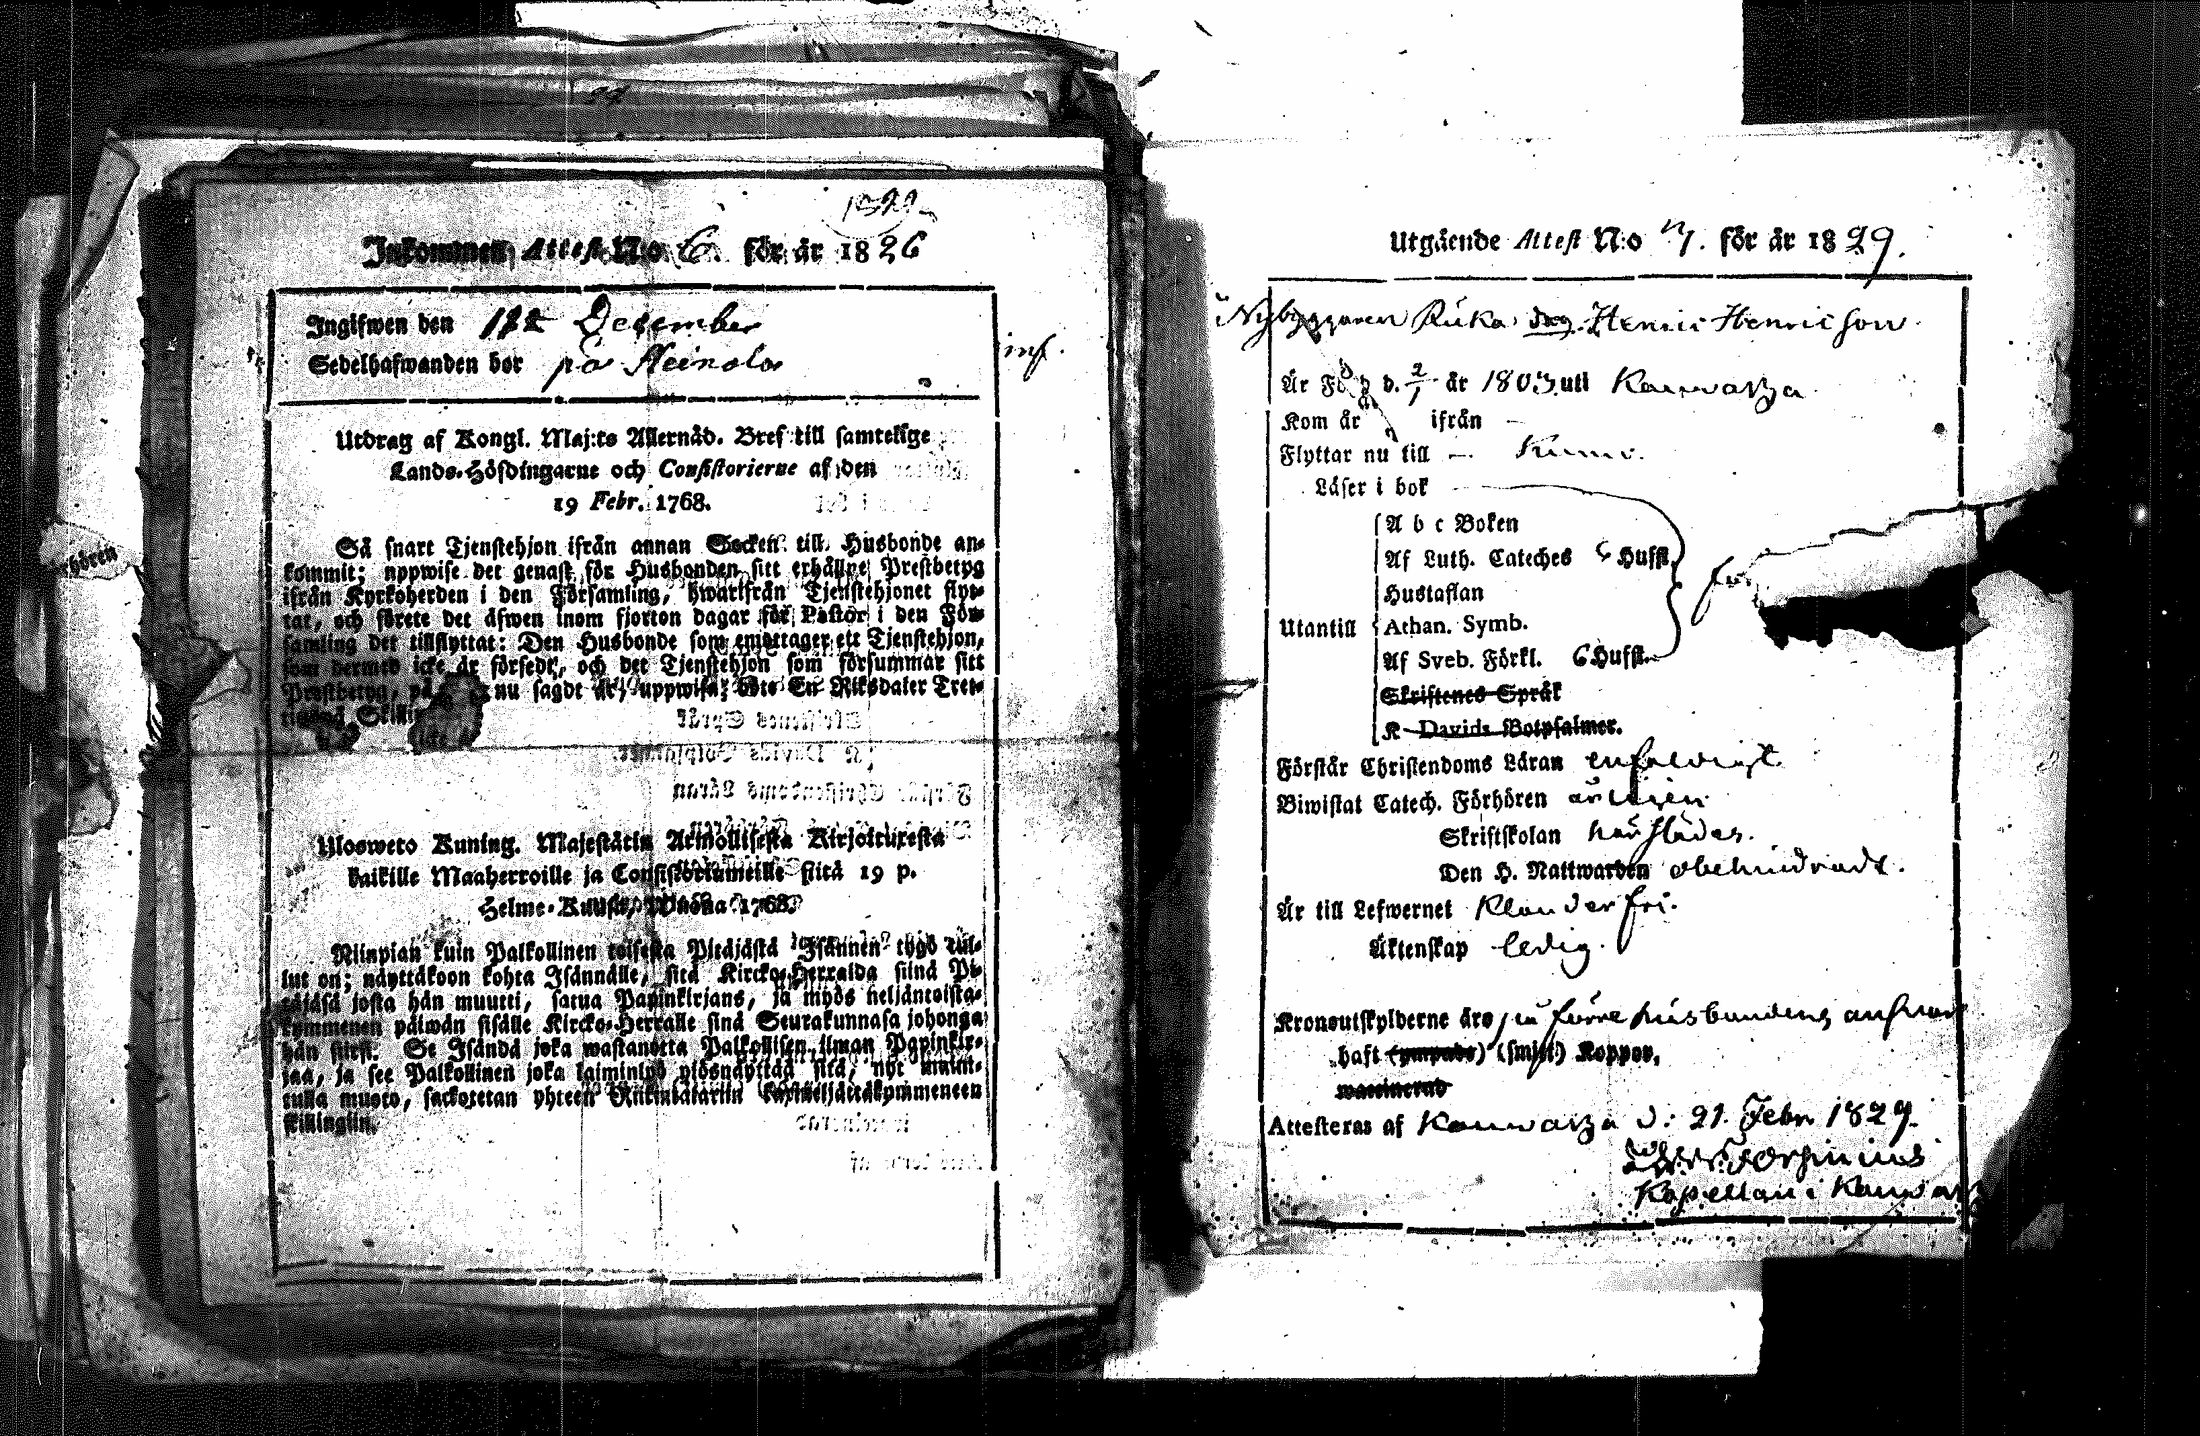 1829
Inkommen Attest No 6. för år 1826
Ingifwen den December
Sedelhafwanden bor på Heinola
Utdrag af Kongl. Maj:ts Allernåd. Bref till samtelige
Lands-Höfdingarne och Consistorierne af den
19 Febr. 1768.
Så snart Tjenstehjon ifrån annan Socken till Husbonde an-
kommit; uppwise det genast för Husbonden sitt erhållne Prestbetyg
ifrån Kyrkoherden i den Församling, hwarifrån Tjenstehjonet flyt-
tat, och förete det äfwen inom fjorton dagar för Pastor i den För-
samling det tillflyttat: Den Husbonde som emottager ett Tjenstehjon,
som dermed icke är försedt, och det Tjenstehjon som försummar sitt
Prestbetyg, på nu sagdt är, uppwisa; böte En Riksdaler Tret-
Ulosweto Kuning. Majestätin Armollisesta Kirjoituxesta
kaikille Maaherroille ja Consistoriumeille siitä 19 p.
Helme-Kuusa, Wuona 1768.
Niinpian kuin Palkollinen toisesta Pitäjästä Isännen tygö tul-
lut on; näyttäköön kohta Isännälle, sitä Kircko-Herralda siinä Pi-
täjäsä josta hän muutti, satua Papinkirjans, ja myös neljäntoista-
kymmenen päiwän sisälle Kircko-Herralle siinä Seurakunnasa johonga
hän siirsi. Se Isändä joka wastanotta Palkollisen ilman Papinkir-
jaa, ja see Palkollinen joka laiminlyö ylösnäyttää sitä, nyt
tulla muoto, sackotetan yhteen Rikintalariin
skillingiin.
Utgående Attest N:o 7. för år 1829.
Nybyggaren Henric Henricson
År Född d. 2/1 år 1803 uti Kauwatza
Kom år ifrån —
Flyttar nu till — Kumo.
Läser i bok
A b c Boken
Af Luth. Cateches 6 Hufst.
Hustaflan
Utantill Athan. Symb.
Af Sveb. Förkl. 6 Hufst.
Skriftenes Språk
K Davids Botpsalmer.
Förstår Christendoms Läran enfaldigt
Biwistat Catech. Förhören årligen
Skriftskolan härstädes.
Den H. Nattwarden obehindradt.
Är till Lefwernet Klanderfri.
Äktenskap ledig.
Kronoutskylderne äro på förre husbondens answar
haft (ympade) (smitt) Koppor,
waccinerad
Attesteras af Kauwatza d: 21. Febr 1829.
Kapellan i Kauwatza